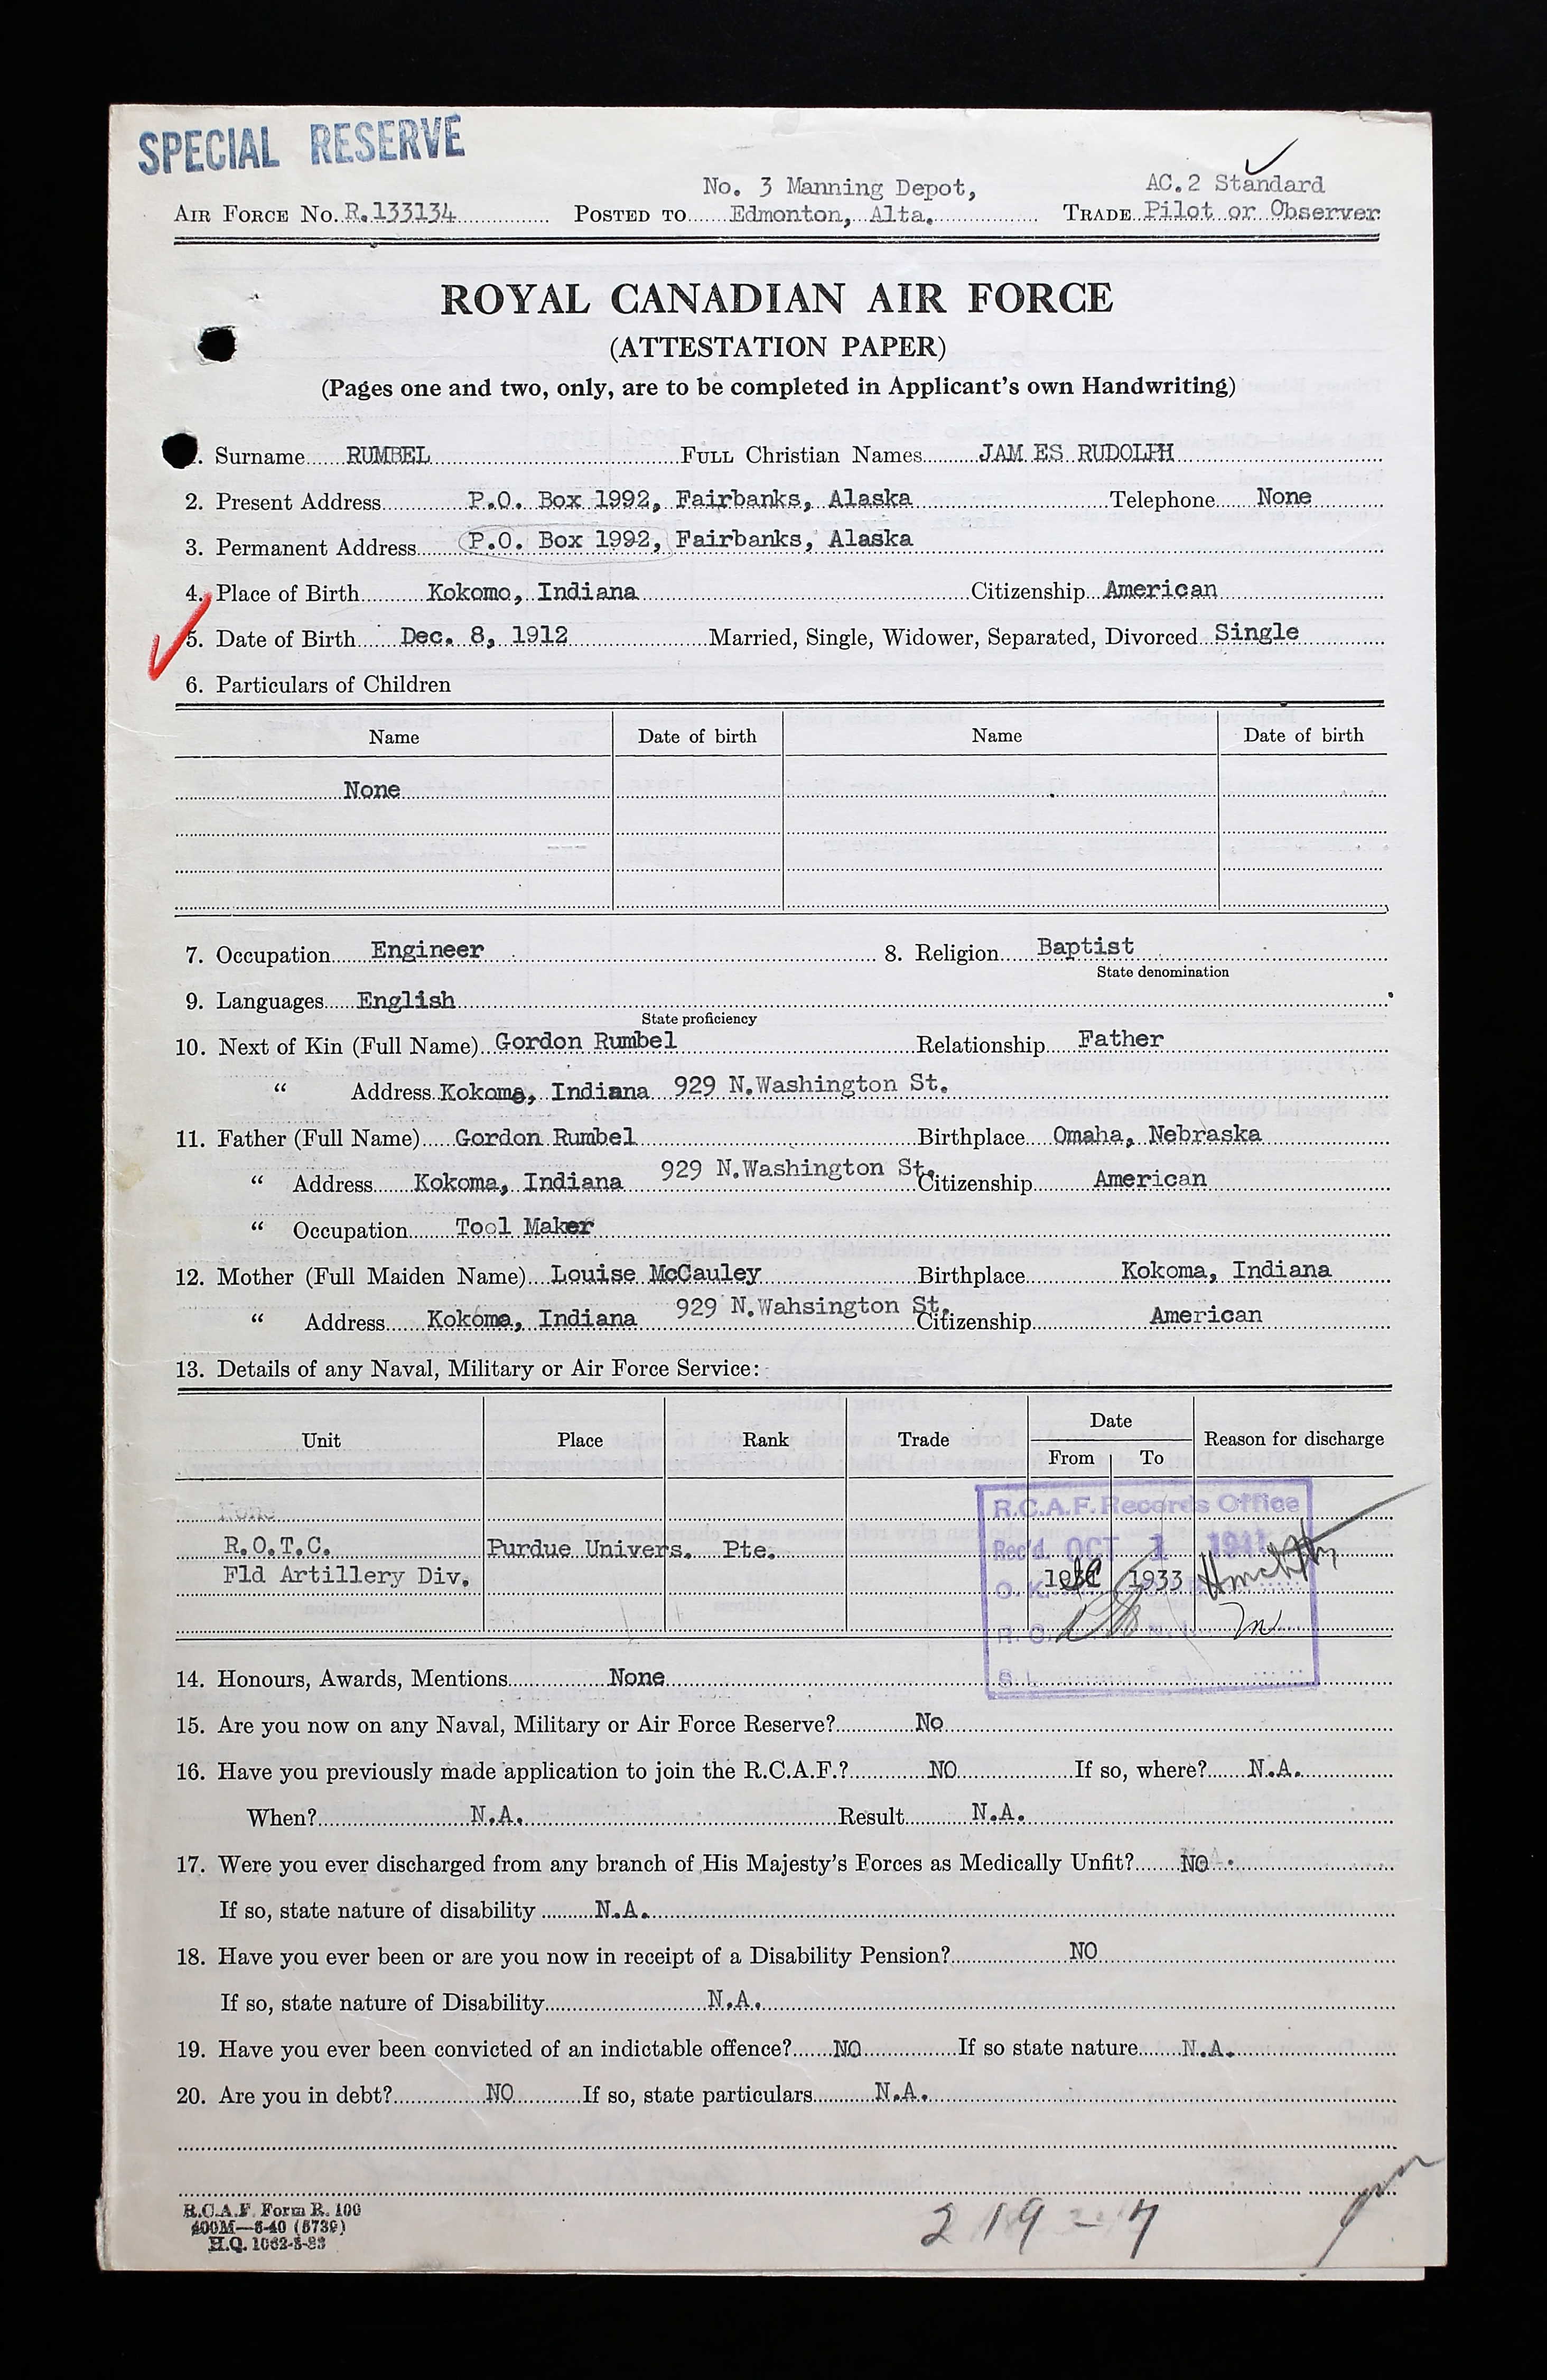 SPECIAL RESERVE
No. 3 Manning Depot, AC.2 Standard
AIR FORCE No. R.133134 POSTED TO Edmonton, Alta. TRADE Pilot or Observer
ROYAL CANADIAN AIR FORCE
(ATTESTATION PAPER)
(Pages one and two, only, are to be completed in Applicant's own Handwriting)
. Surname RUMBEL FULL Christian Names JAM ES RUDOLPH
2. Present Address P.O. Box 1992, Fairbanks, Alaska Telephone None
3. Permanent Address P.O. Box 1992, Fairbanks, Alaska
4. Place of Birth Kokomo, Indiana Citizenship American
5. Date of Birth Dec. 8, 1912 Married, Single, Widower, Separated, Divorced Single
6. Particulars of Children
Name Date of birth Name Date of birth
None
7. Occupation Engineer 8. Religion Baptist
State denomination
9. Languages English
State proficiency
10. Next of Kin (Full Name) Gordon Rumbel Relationship Father
" Address Kokomo, Indiana 929 N.Washington St.
11. Father (Full Name) Gordon Rumbel Birthplace Omaha, Nebraska
" Address Kokoma, Indiana 929 N.Washington St. Citizenship American
" Occupation Tool Maker
12. Mother (Full Maiden Name) Louise McCauley Birthplace Kokoma, Indiana
" Address Kokoma, Indiana 929 N.Wahsington St. Citizenship American
13. Details of any Naval, Military or Air Force Service:
Unit Place Rank Trade Date Reason for discharge
From To
None
R.C.A.F. Records Office
R.O.T.C. Purdue Univers. Pte.
Rec'd. OCT 1 1941
Fld Artillery Div. 1933
O.K.
R.O.
S.I.
14. Honours, Awards, Mentions None
15. Are you now on any Naval, Military or Air Force Reserve? No
16. Have you previously made application to join the R.C.A.F.? NO If so, where? N.A.
When? N.A. Result N.A.
17. Were you ever discharged from any branch of His Majesty's Forces as Medically Unfit? NO
If so, state nature of disability N.A.
18. Have you ever been or are you now in receipt of a Disability Pension? NO
If so, state nature of Disability N.A.
19. Have you ever been convicted of an indictable offence? NO If so state nature N.A.
20. Are you in debt? NO If so, state particulars N.A.
R.C.A.F. Form R. 100
400M—6-40 (5739)
H.Q. 1062-3-83
219-7